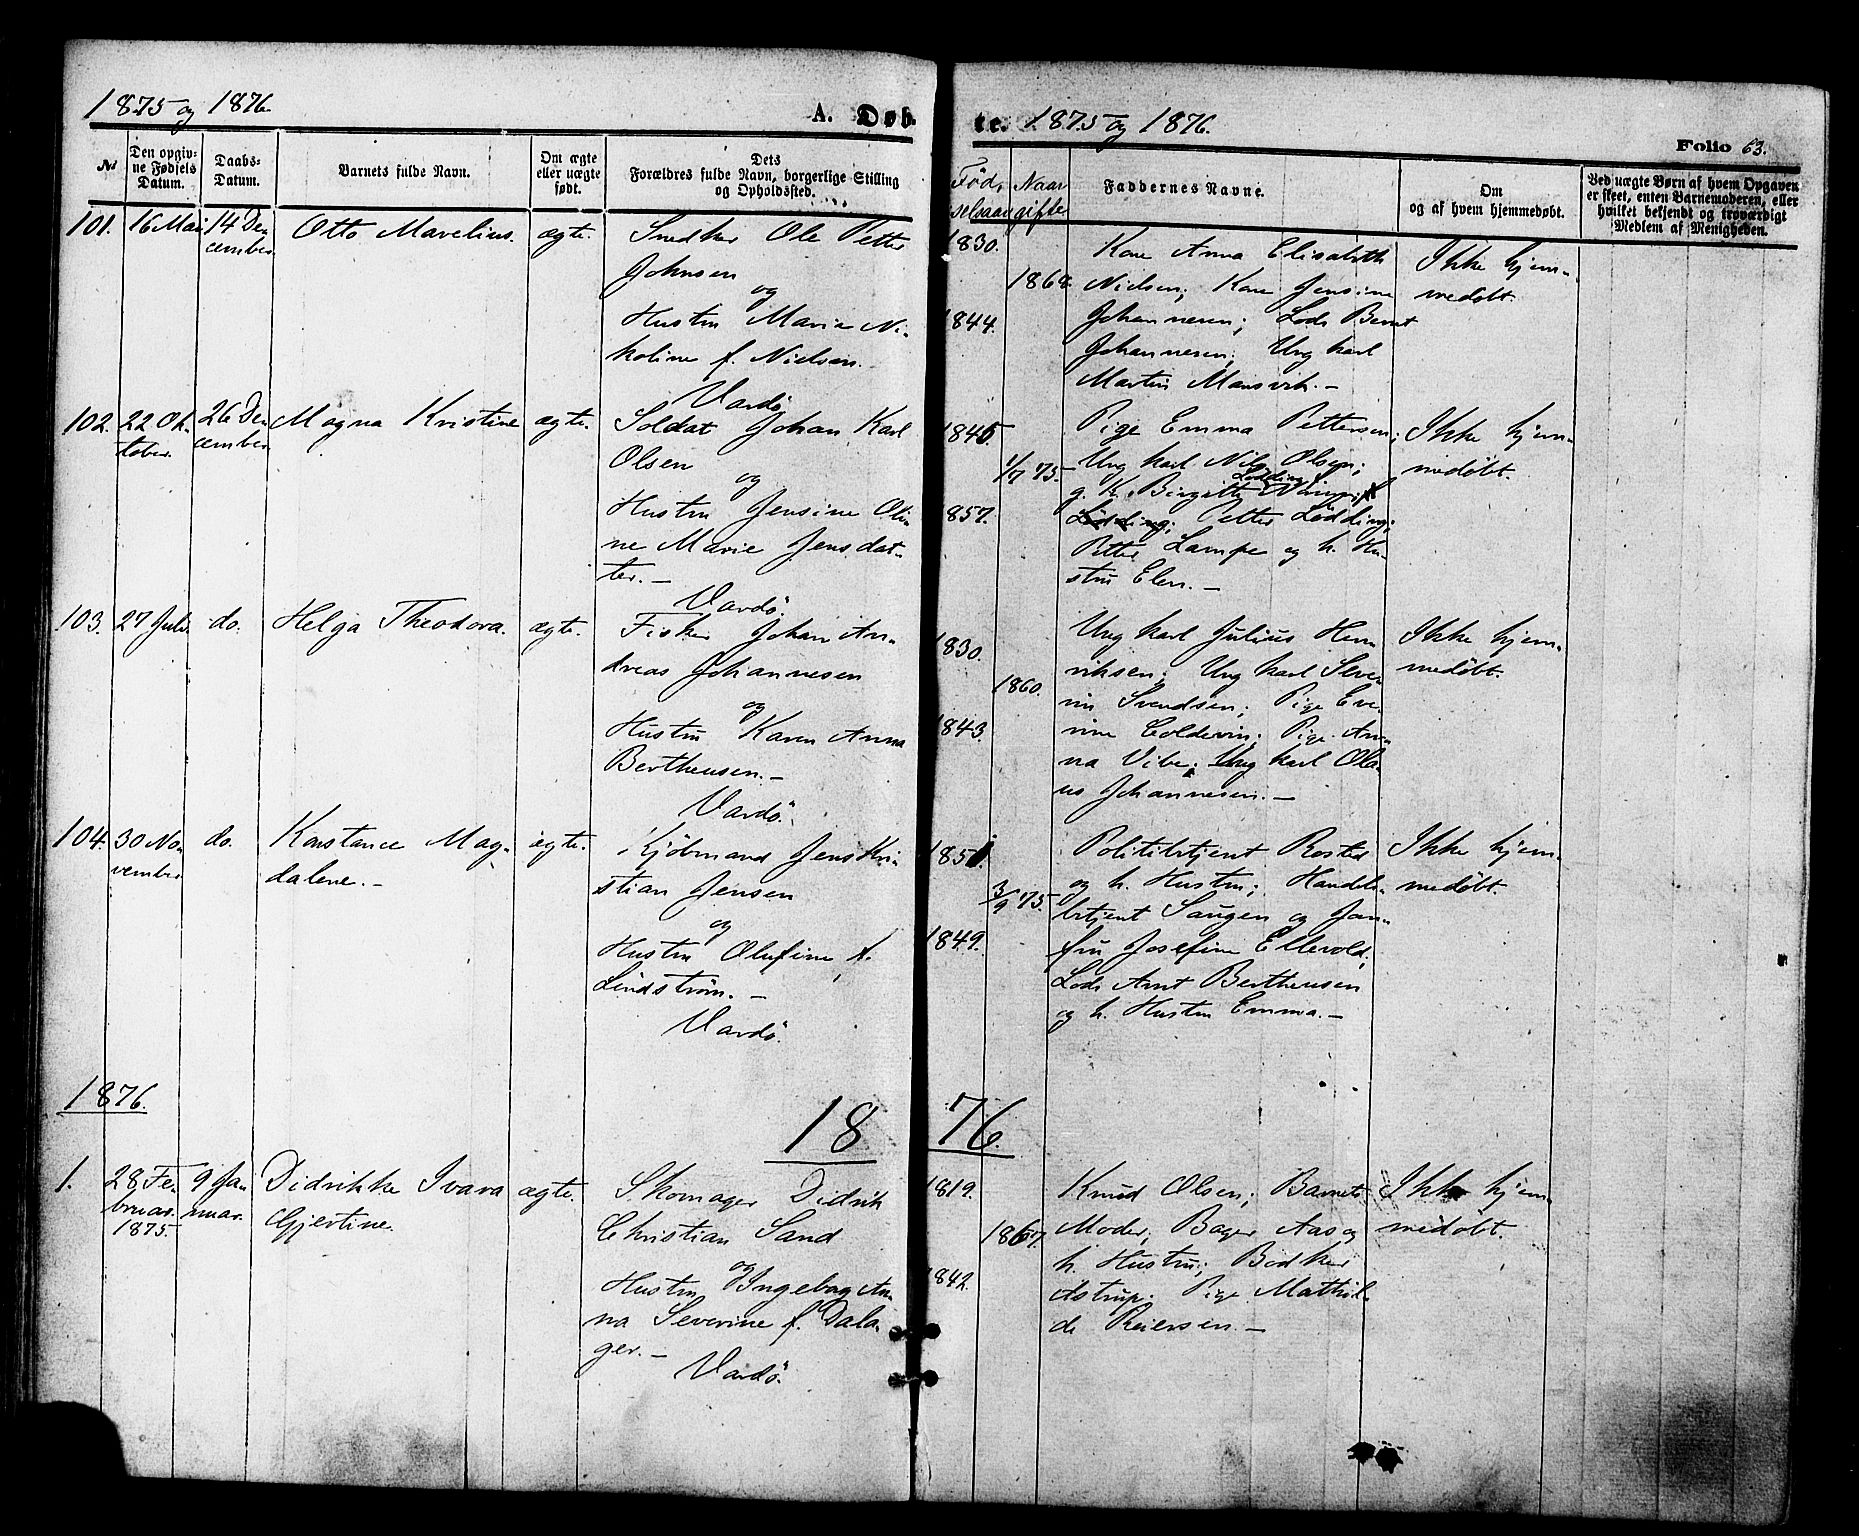 1875 og 1876.
A. Døb-
te. 1875 og 1876.
Folio 63.
No
Den opgiv-
ne Fødsels
Datum.
Daabs-
Datum.
Barnets fulde Navn.
Om ægte
eller uægte
født.
Dets
Forældres fulde Navn, borgerlige Stilling
og Opholdssted.
Føds
selsaar
Naar
gifte
Faddernes Navne.
Om
og af hvem hjemmedøbt.
Ved uægte Børn af hvem Opgaven
er skeet, enten Barnemoderen, eller
hvilket bekjendt og troværdigt
Medlem af Menigheden.
101.
16 Mai
14 De-
cember.
Otto Marelius.
ægte.
Snedker Ole Petter
Johnsen
og
Hustru Marie Ni-
koline f. Nielsen.
Vardø.
1830.
1868.
1844.
Kone Anna Elisabeth
Nielsen; Kone Jensine
Johannesen; Lods Bernt
Johannesen; Ung karl
Martin Mansvik. -
Ikke hjem-
medøbt.
102.
22 Ok-
tober.
26 De-
cember.
Magna Kristine
ægte.
Soldat Johan Karl
Olsen
og
Hustru Jensine Oli-
ne Marie Jensdat-
ter. -
Vardø.
1845
1/7 75.
857.
Pige Emma Pettersen;
Ung karl Nils Olsen;
Lødding
g. K. Birgitte
Lødding; Petter Lødding;
Petter Lampe og h. Hu-
stru Elen. -
Ikke hjem-
medøbt.
103.
27 Juli.
do.
Helga Theodora.
ægte.
Fisker Johan An-
dreas Johannesen
og
Hustru Karen Anna
Bertheusen. -
Vardø.
830.
1860.
843.
Ung karl Julius Hen-
riksen; Ung karl Seve-
rin Svendsen; Pige Eve-
rine Coldevin; Pige An-
na Vibe; Ung karl Ola-
us Johannesen. -
Ikke hjem-
medøbt.
104.
30 No-
vember
do.
Konstance Mag-
dalene. -
ægte.
Kjøbmand Jens Kri-
stian Jensen
og
Hustru Olufine f.
Lindstrøm. -
Vardø.
1851.
3/9 75.
1849.
Politibetjent Rosted
og h. Hustru; Handels-
betjent Saugen og Jom-
fru Josefine Ellevold;
Lods Arnt Bertheusen
og h. Hustru Emma. -
Ikke hjem-
medøbt.
1876.
18 76.
1.
28 Fe-
bruar.
1875.
9 Ja-
nuar.
Didrikke Ivara
Gjertine.
ægte.
Skomager Didrik
Christian Sand
og
Hustru Ingeborg An-
na Severine f. Dala-
ger. -
Vardø.
1819.
1867.
1842.
Knud Olsen; Barnets
Moder; Bager Aas og
h. Hustru; Bødker
Astrup; Pige Mathil-
de Reiersen. -
Ikke hjem-
medøbt.